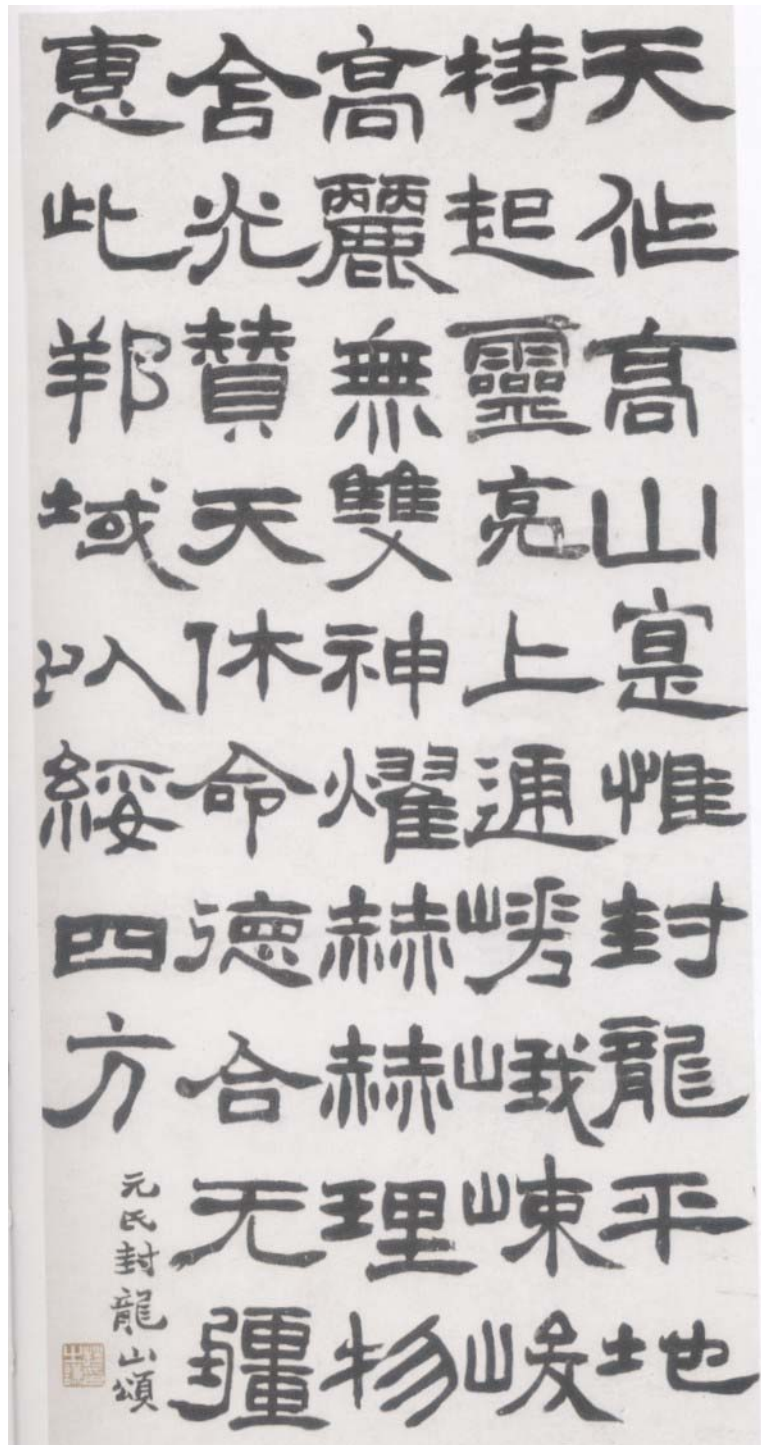 天作高山寔惟封龍平地
特起靈亮上通嵣峨崠峻
高麗無雙神燿赫赫理物
含光贊天休命德合无疆
惠此邦域以綏四方
元氏封龍山頌